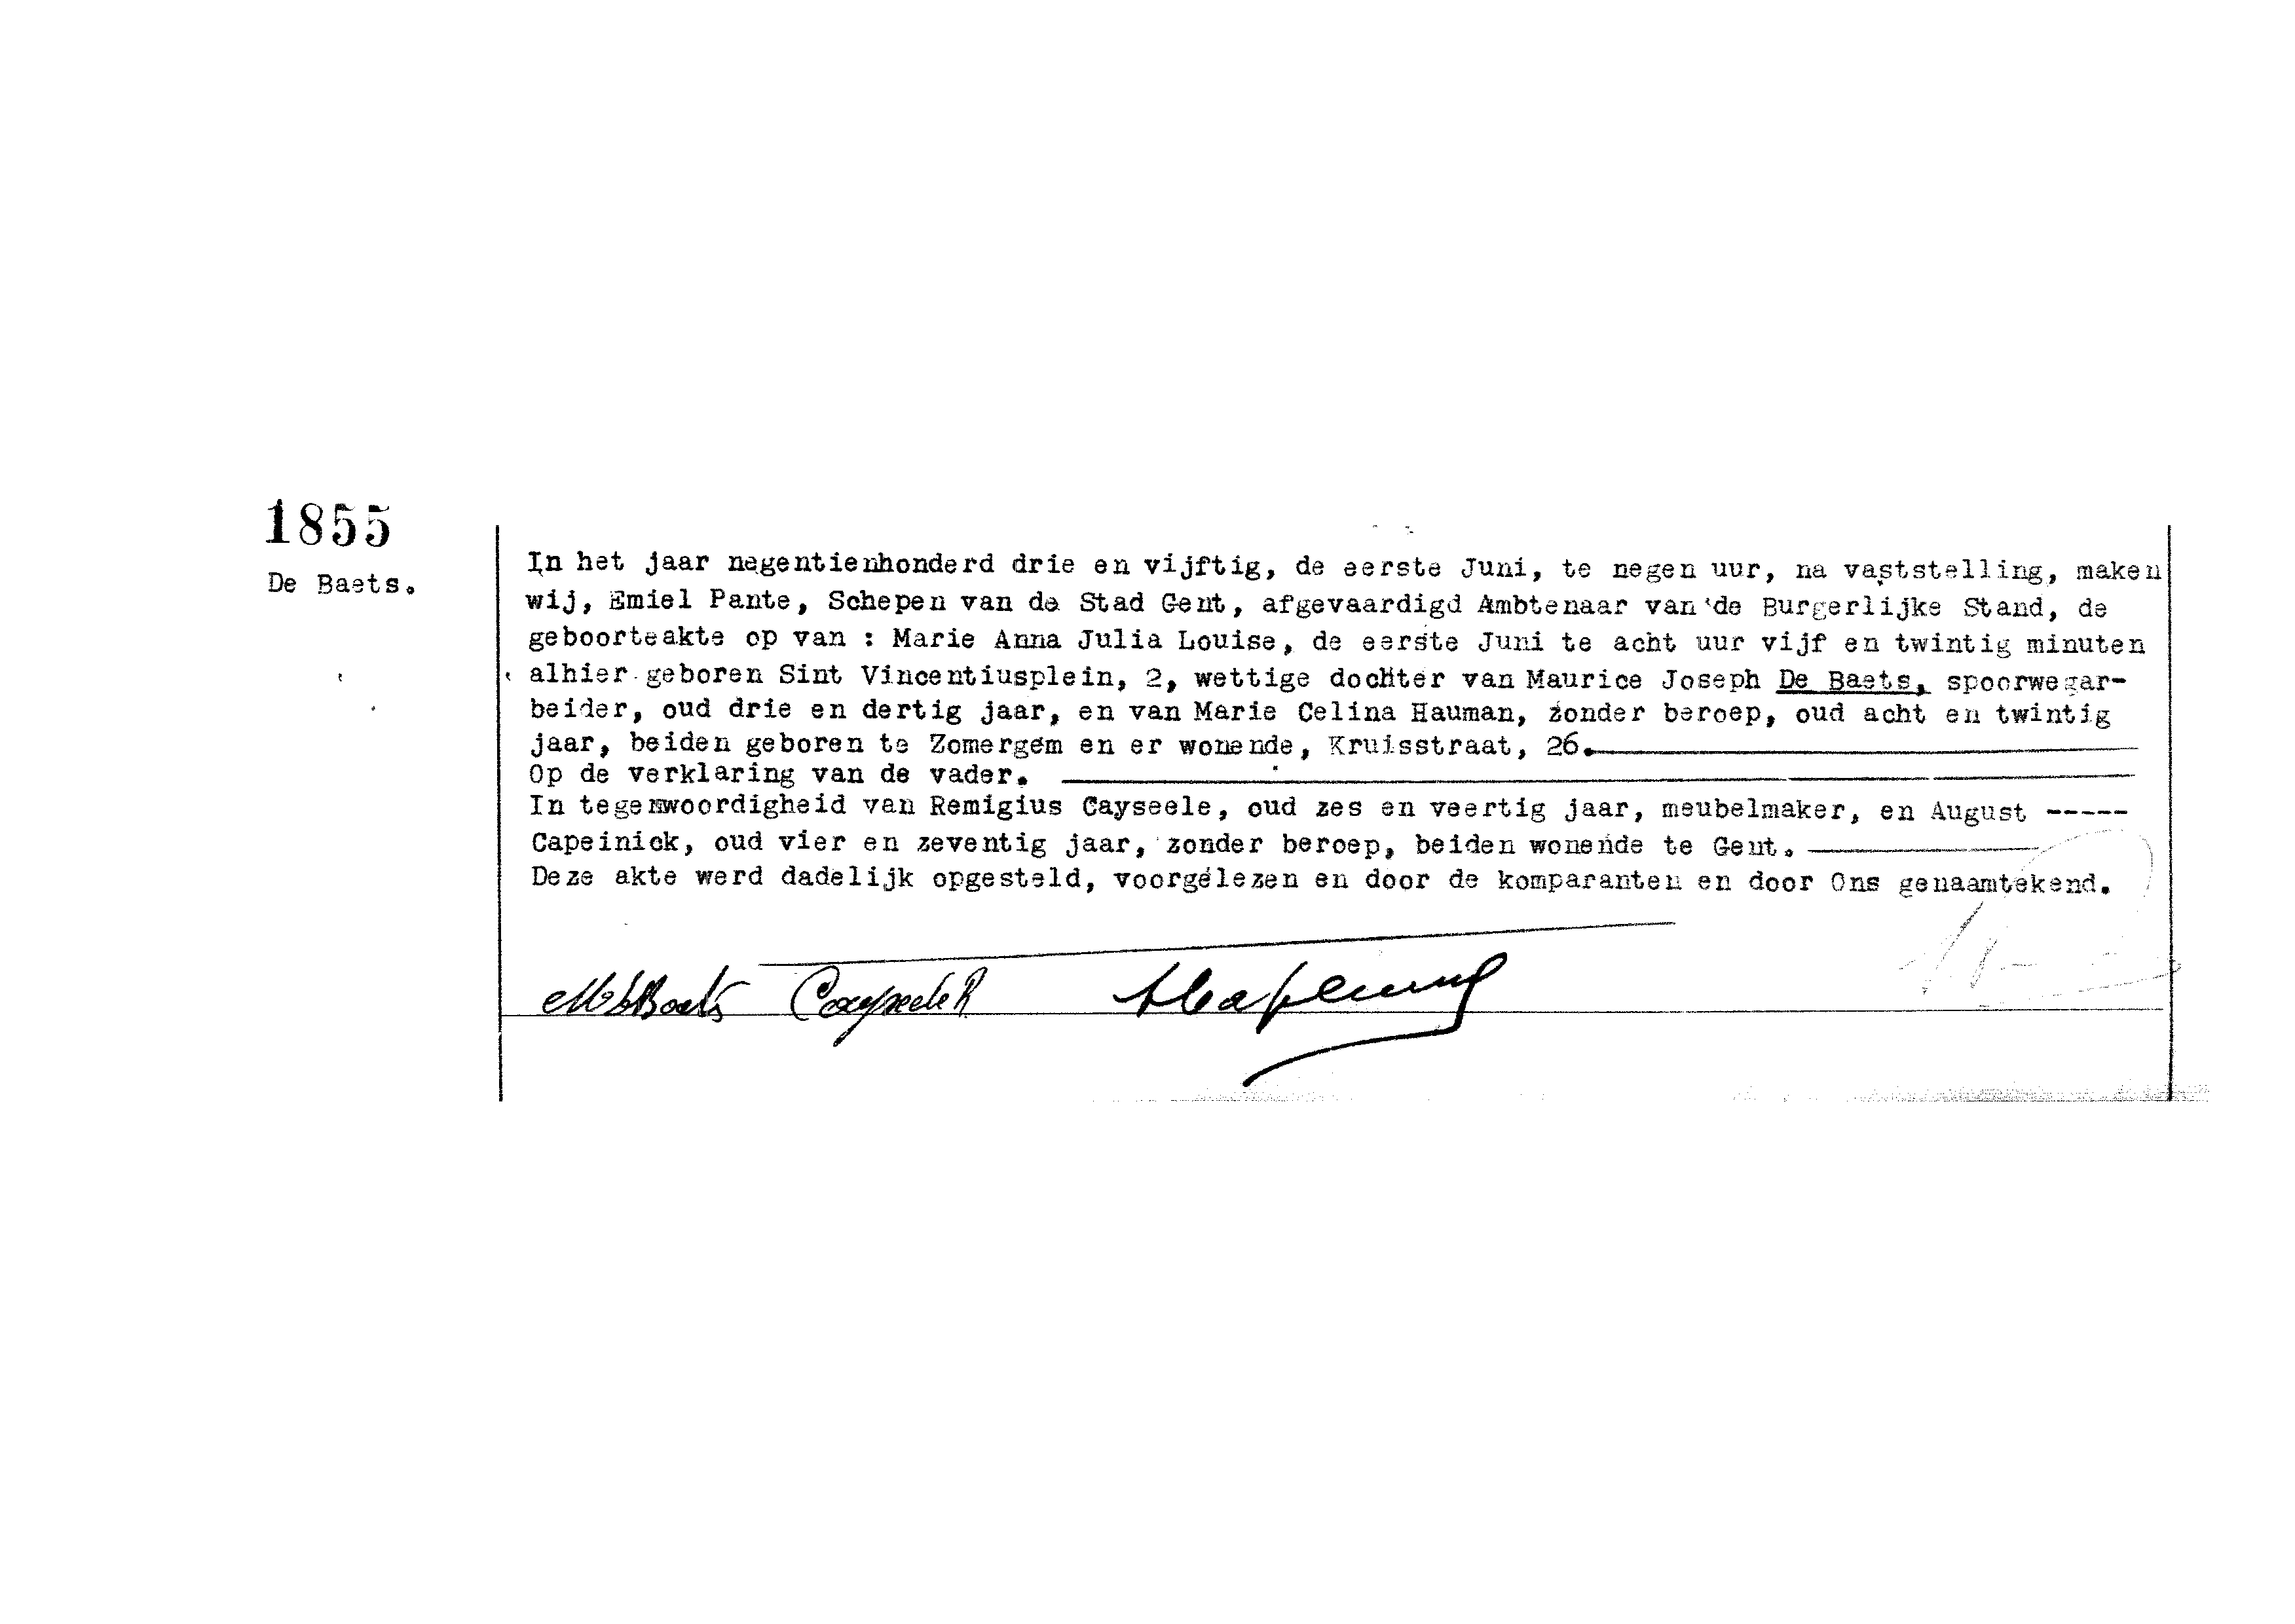 1855
De Baets.
In het jaar negentienhonderd drie en vijftig, de eerste Juni, te negen uur, na vaststelling, maken
wij, Emiel Pante, Schepen van de Stad Gent, afgevaardigd Ambtenaar van de Burgerlijke Stand, de
geboorteakte op van : Marie Anna Julia Louise, de eerste Juni te acht uur vijf en twintig minuten
alhier geboren Sint Vincentiusplein, 2, wettige dochter van Maurice Joseph De Baets, spoorwegar-
beider, oud drie en dertig jaar, en van Marie Celina Hauman, zonder beroep, oud acht en twintig
jaar, beiden geboren te Zomergem en er wonende, Kruisstraat, 26.
Op de verklaring van de vader.
In tegenwoordigheid van Remigius Cayseele, oud zes en veertig jaar, meubelmaker, en August -----
Capeinick, oud vier en zeventig jaar, zonder beroep, beiden wonende te Gent.
Deze akte werd dadelijk opgesteld, voorgelezen en door de komparanten en door Ons genaamtekend.
Cayseele R